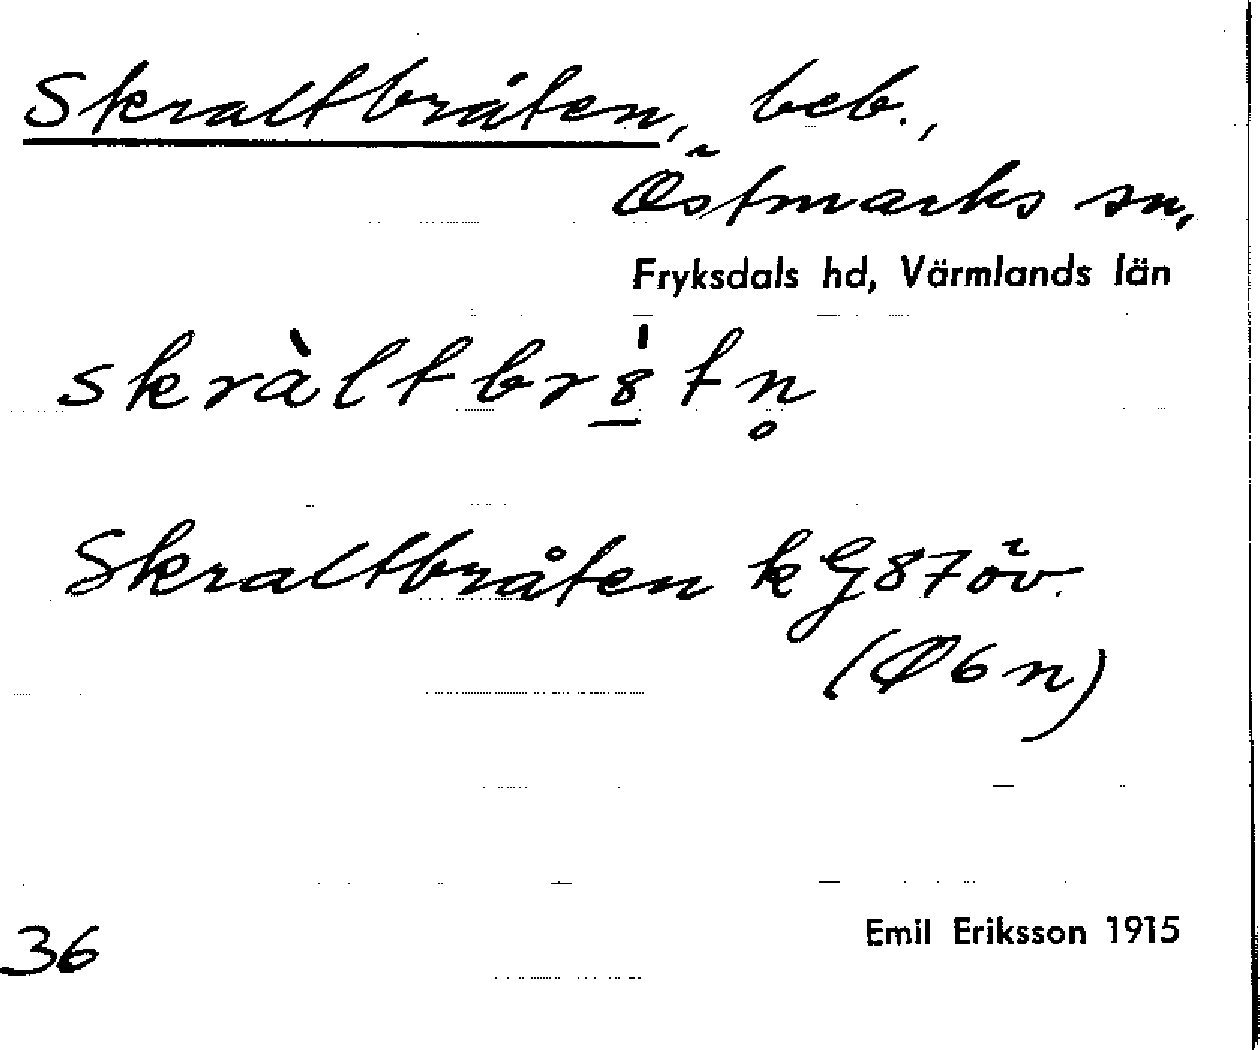 Skraltbråten, beb.,
Östmarks sn,
Fryksdals hd, Värmlands län
skràltbr8̲́tn̥
Skraltbråten kG87öv.
(Ø6n)
36
Emil Eriksson 1915